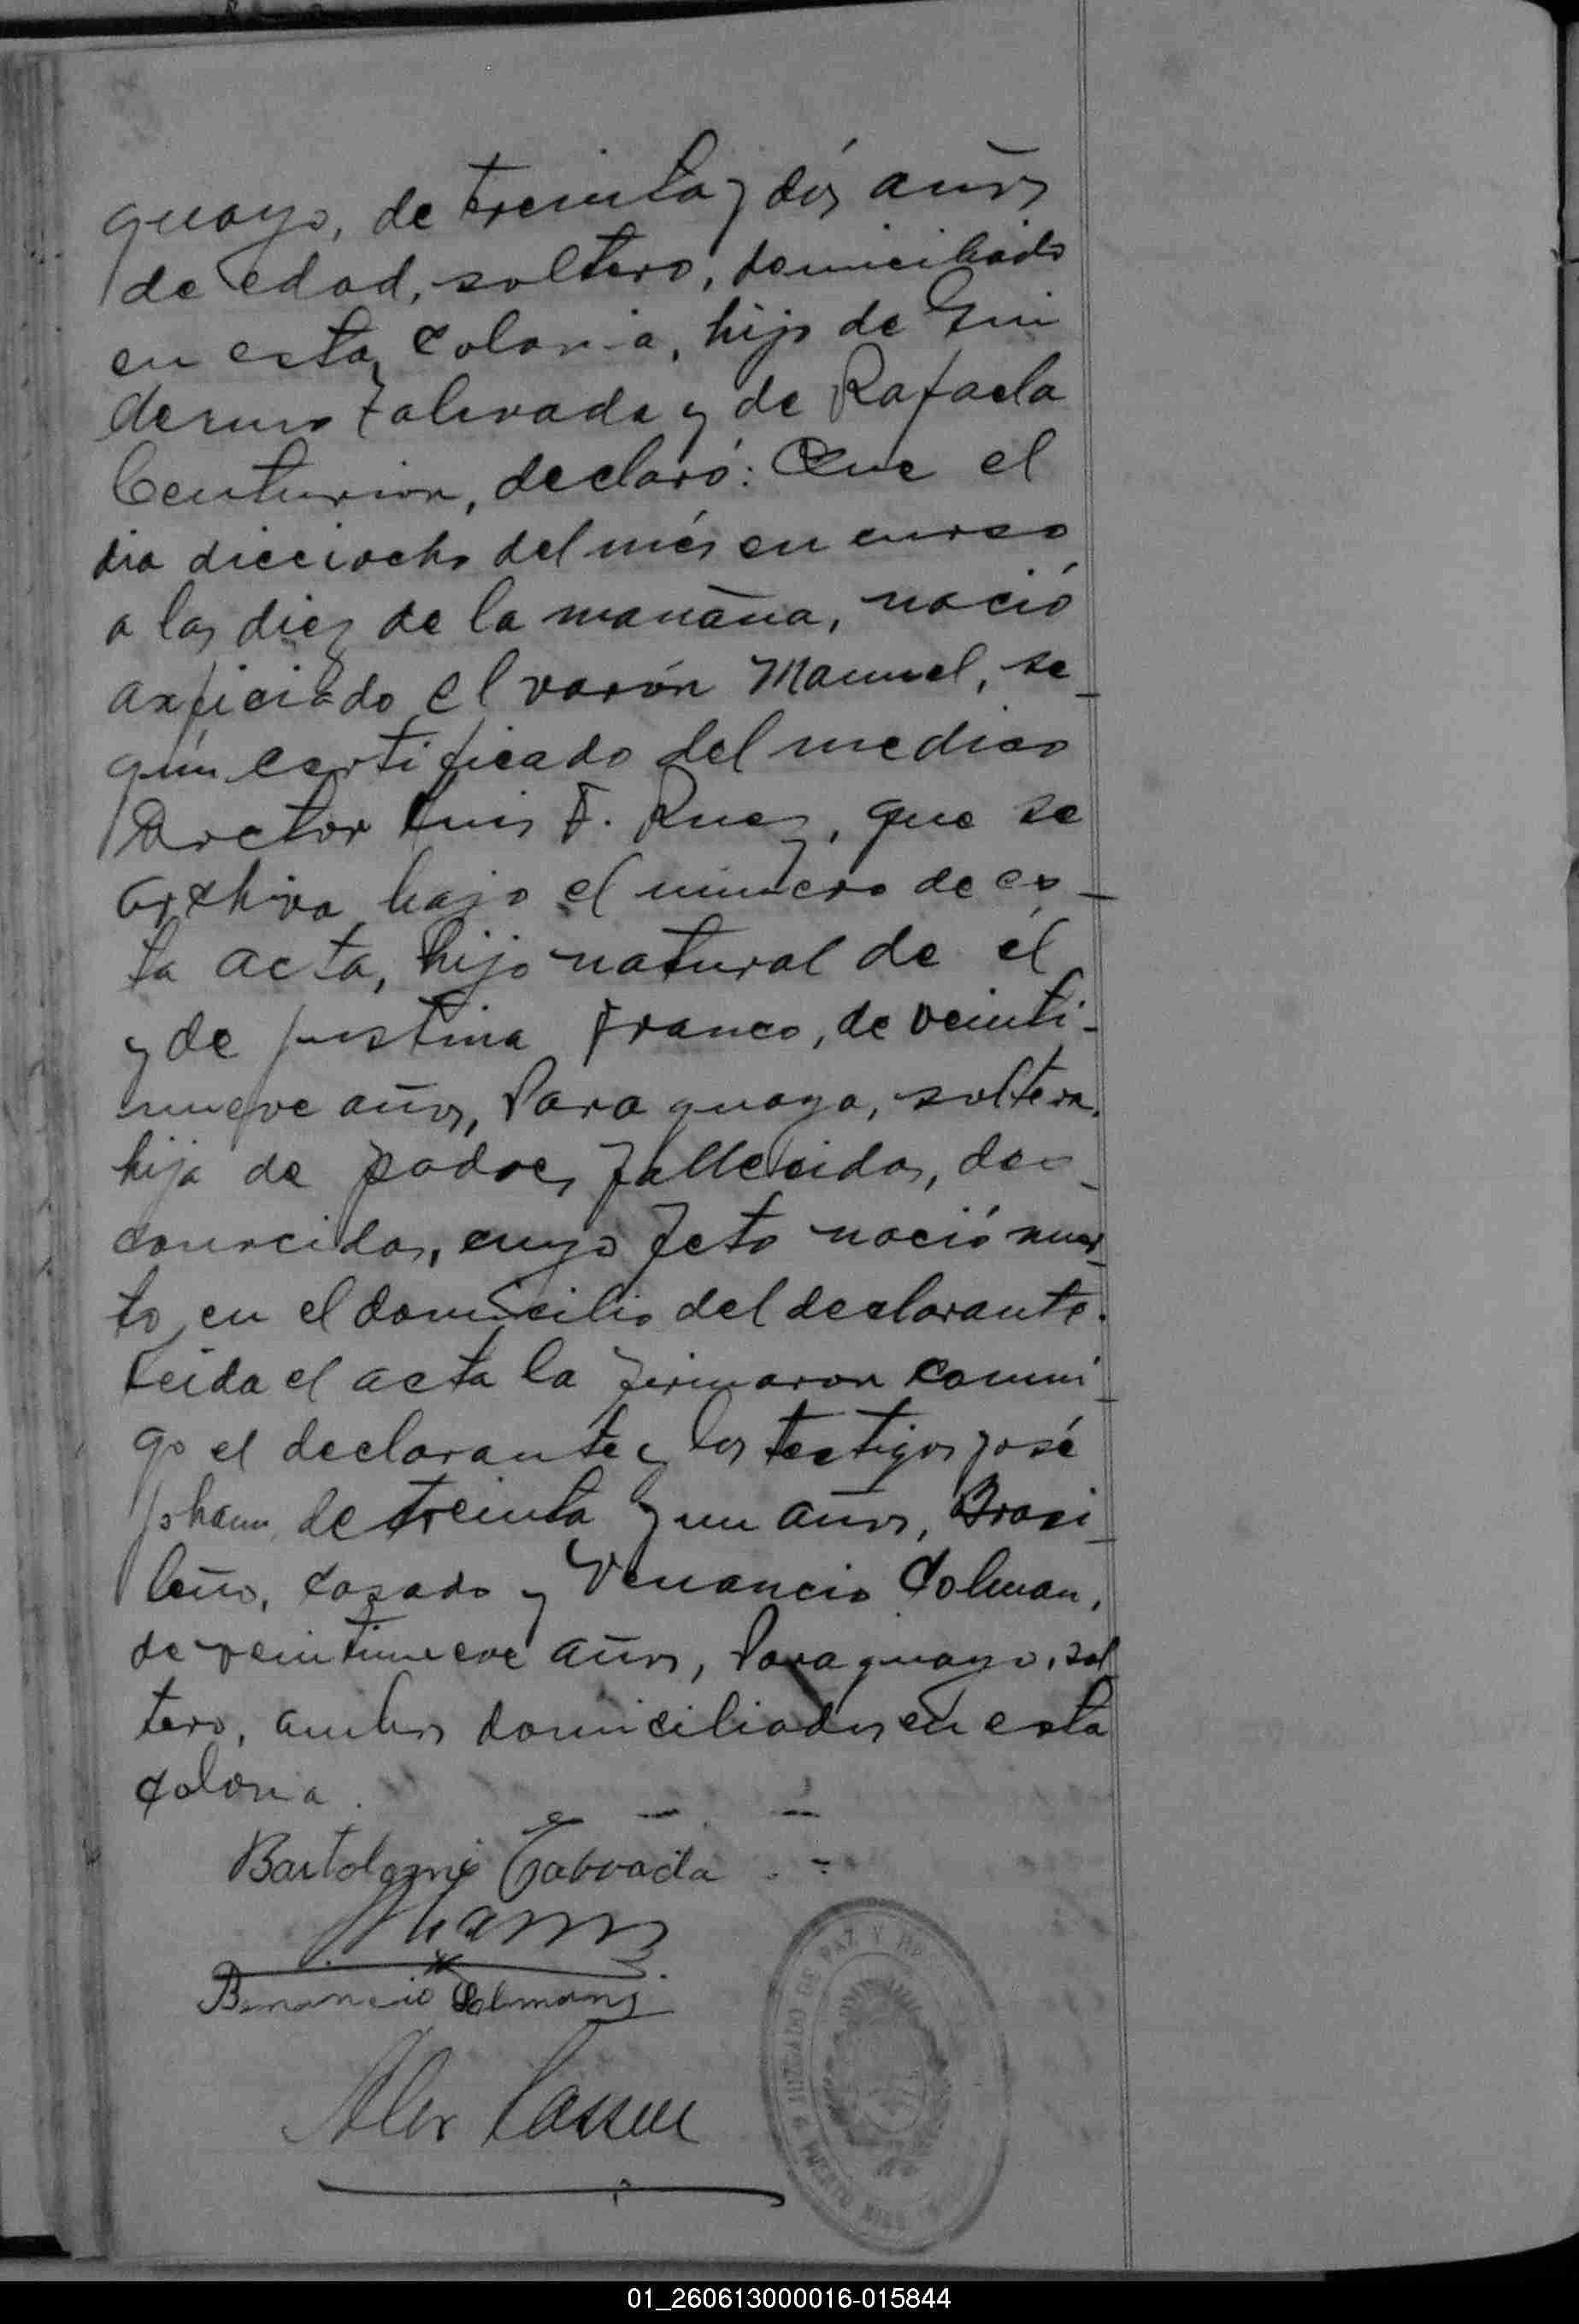 guayo, de treinta y dos años
de edad, soltero, domiciliado
en esta Colonia, hijo de
y de Rafaela
Centurion, declaró: Que el
dia dieciocho del més en curso
a las diez de la mañana, nació
axficiado el varón Manuel, se-
gún certificado del medico
Doctor Luis F. que se
archiva bajo el número de es-
ta acta, hijo natural de él
y de Justina Franco, de veinti-
nueve años, Paraguaya, soltera,
hija de padres fallecidos, des-
conocidos, cuyo feto nació muer-
to en el domicilio del declarante.
Leida el acta la firmaron conmi-
go el declarante y los testigos José
Johann, de treinta y un años, Brasi-
leño, casado y Venancio Colman,
de veintinueve años, Paraguayo, sol
tero, ambos domiciliados en esta
Colonia.
Bartolomé
Benancio Colman
JUZGADO DE PAZ Y
PUERTO RICO
01_260613000016-015844